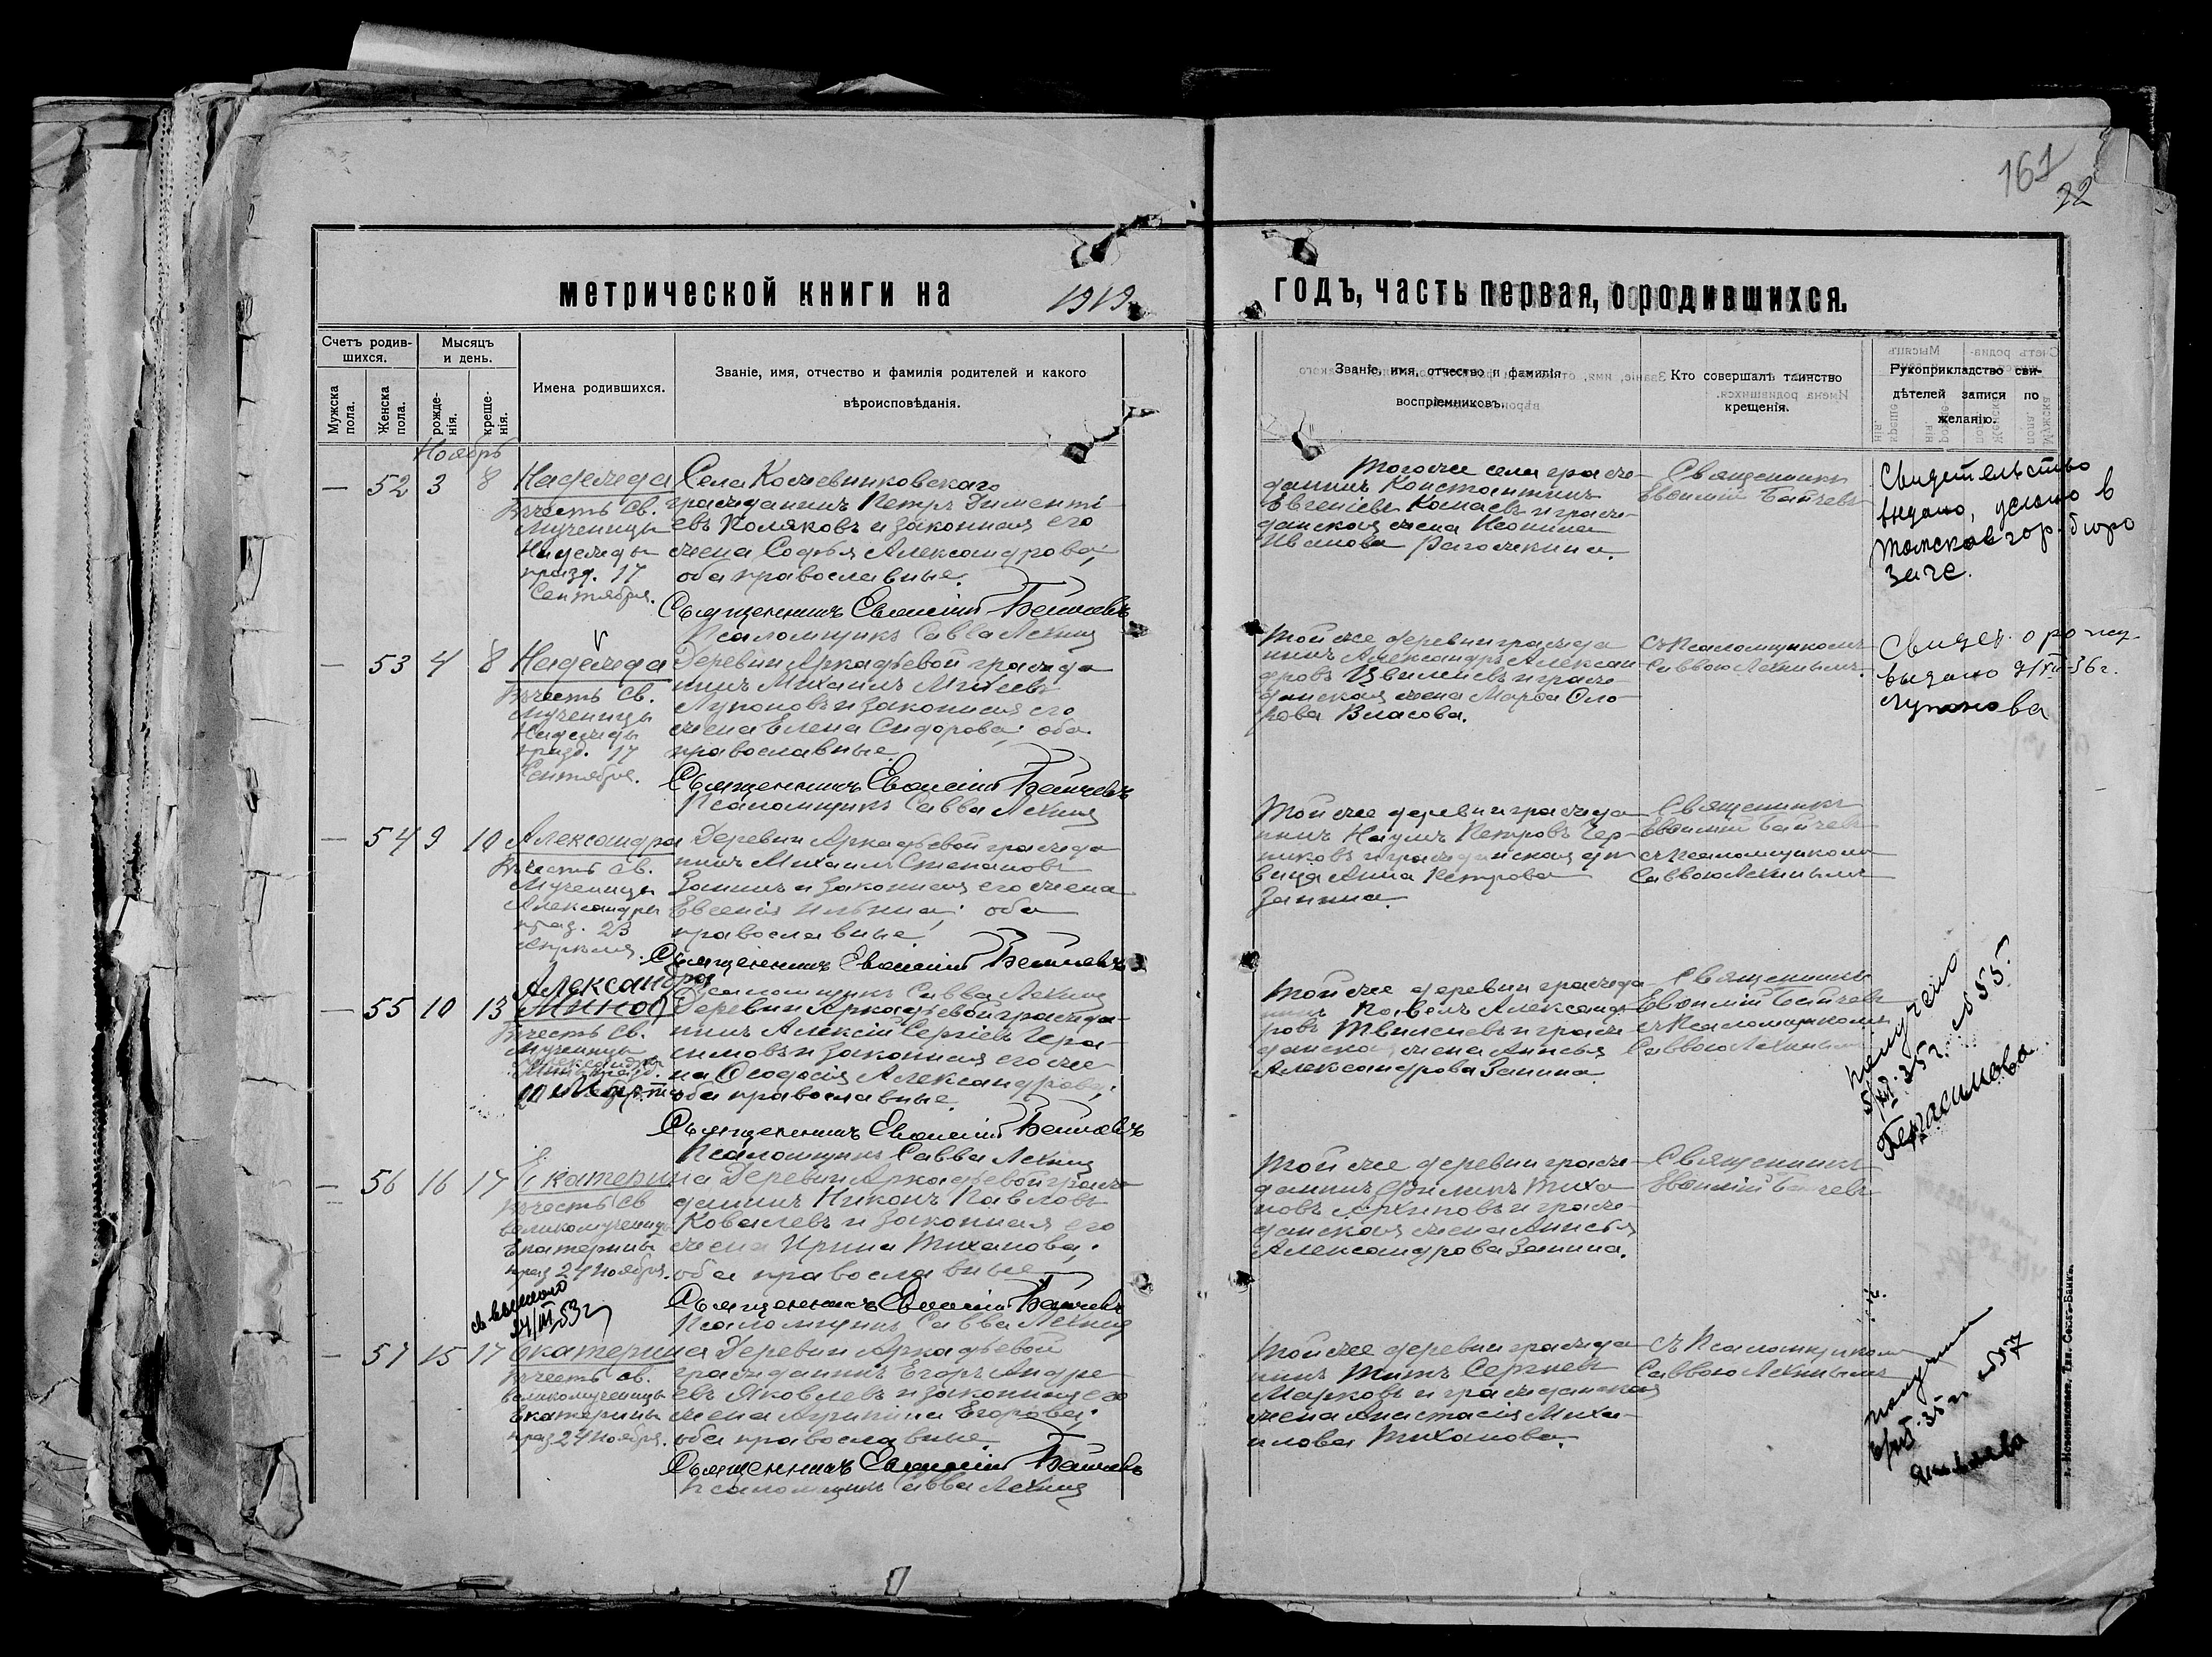 161
22
метрической книги на 1919
годъ, часть первая, о родившихся.
Счетъ родив-
шихся.
Мужска
пола.
Женска
пола.
Мѣсяцъ
и день.
рожде-
нія.
креще-
нія.
Имена родившихся.
Званіе, имя, отчество и фамилія родителей и какого
вѣроисповѣданія.
Званіе, имя, отчество и фамилія
воспріемниковъ.
Кто совершалъ таинство
крещенія.
Рукоприкладство сви-
дѣтелей записи по
желанію.
Ноябрь
— 52 3 8
Надежда
Въ честь св.
Мученицы
Надежды
празд. 17
Сентября.
Села Кожевниковскаго
гражданинъ Петръ Дименті-
евъ Поляковъ и законная его
жена Софья Александрова;
оба православные.
Священникъ Евѳимій
Псаломщикъ Савва Лехниц
Тогоже села граж-
данинъ Константинъ
Евгеніевъ и граж-
данская жена
Иванова Рагожкина.
Священникъ
Евѳимій
Свидетельство
выдано, дело в
Томское гор. бюро
загс.
— 53 4 8
Надежда
Въ честь св.
Мученицы
Надежды
празд. 17
Сентября.
Деревни Аркадьевой гражда
нинъ Михаилъ
Лупоновъ и законная его
жена Елена Сидорова; оба
православные.
Священникъ Евѳимій
Псаломщикъ Савва Лехниц
Тойже деревни гражда
нинъ Александръ Алексан
дровъ и граж-
данская жена Марѳа
Власова.
съ Псаломщикомъ
Саввою
Свидет. о рожд.
выдано 36 г.
Лупонова
— 54 9 10
Александра
Въ честь св.
Мученицы
Александры
праз. 23
Апрѣля.
Деревни Аркадьевой гражда
нинъ Михаилъ Степановъ
Занинъ и законная его жена
Евгенія Ильина; оба
православные.
Священникъ Евѳимій
Псаломщикъ Савва Лехниц
Тойже деревни гражда
нинъ Наумъ Петровъ Чер-
никовъ и гражданская дѣ
вица Анна Петрова
Занина.
Священникъ
Евѳимій
съ Псаломщикомъ
Саввою
— 55 10 13
Александра
Въ честь св.
Мученицы
Александра
Марта
Деревни Аркадьевой гражда-
нинъ Алексій Сергіевъ Гера-
симовъ и законная его же-
на Ѳеодосія Александрова;
оба православные.
Священникъ Евѳимій
Псаломщикъ Савва Лехниц
Тойже деревни гражда
нинъ Павелъ Александ
ровъ и граж
данская жена Анисья
Александрова Занина.
Священникъ
Евѳимій
съ Псаломщикомъ
Саввою
получено
35 г. 55
Герасимова
— 56 16 17
Екатерина
Въ честь св
великомученицы
Екатерины
праз 24 Ноября.
Деревни Аркадьевой граж
данинъ Никонъ Павловъ
Ковалевъ и законная его
жена Ирина Тиханова;
оба православные
Священникъ Евѳимій
Псаломщикъ Савва Лехниц
Тойже деревни граж
данинъ Филипъ Тиха
новъ Архиповъ и граж
данская жена Анисья
Александрова Занина.
Священникъ
Евѳимій
св выдано
24/III 53 г
— 57 15 17
Екатерина
Въ честь св.
великомученицы
Екатерины
праз 24 Ноября.
Деревни Аркадьевой
гражданинъ Егоръ Андре
евъ Яковлевъ и законная его
жена Агрипина Егорова;
оба православные.
Священникъ Евѳимій
Псаломщикъ Савва Лехниц
Тойже деревни гражда
нинъ Титъ Сергѣевъ
Марковъ и гражданская
жена Анастасія Миха-
илова Тиханова.
съ Псаломщикомъ
Саввою
получила
35 г 57
Яковлева
г. Новониколаевск. Тип. Союз-Банк.